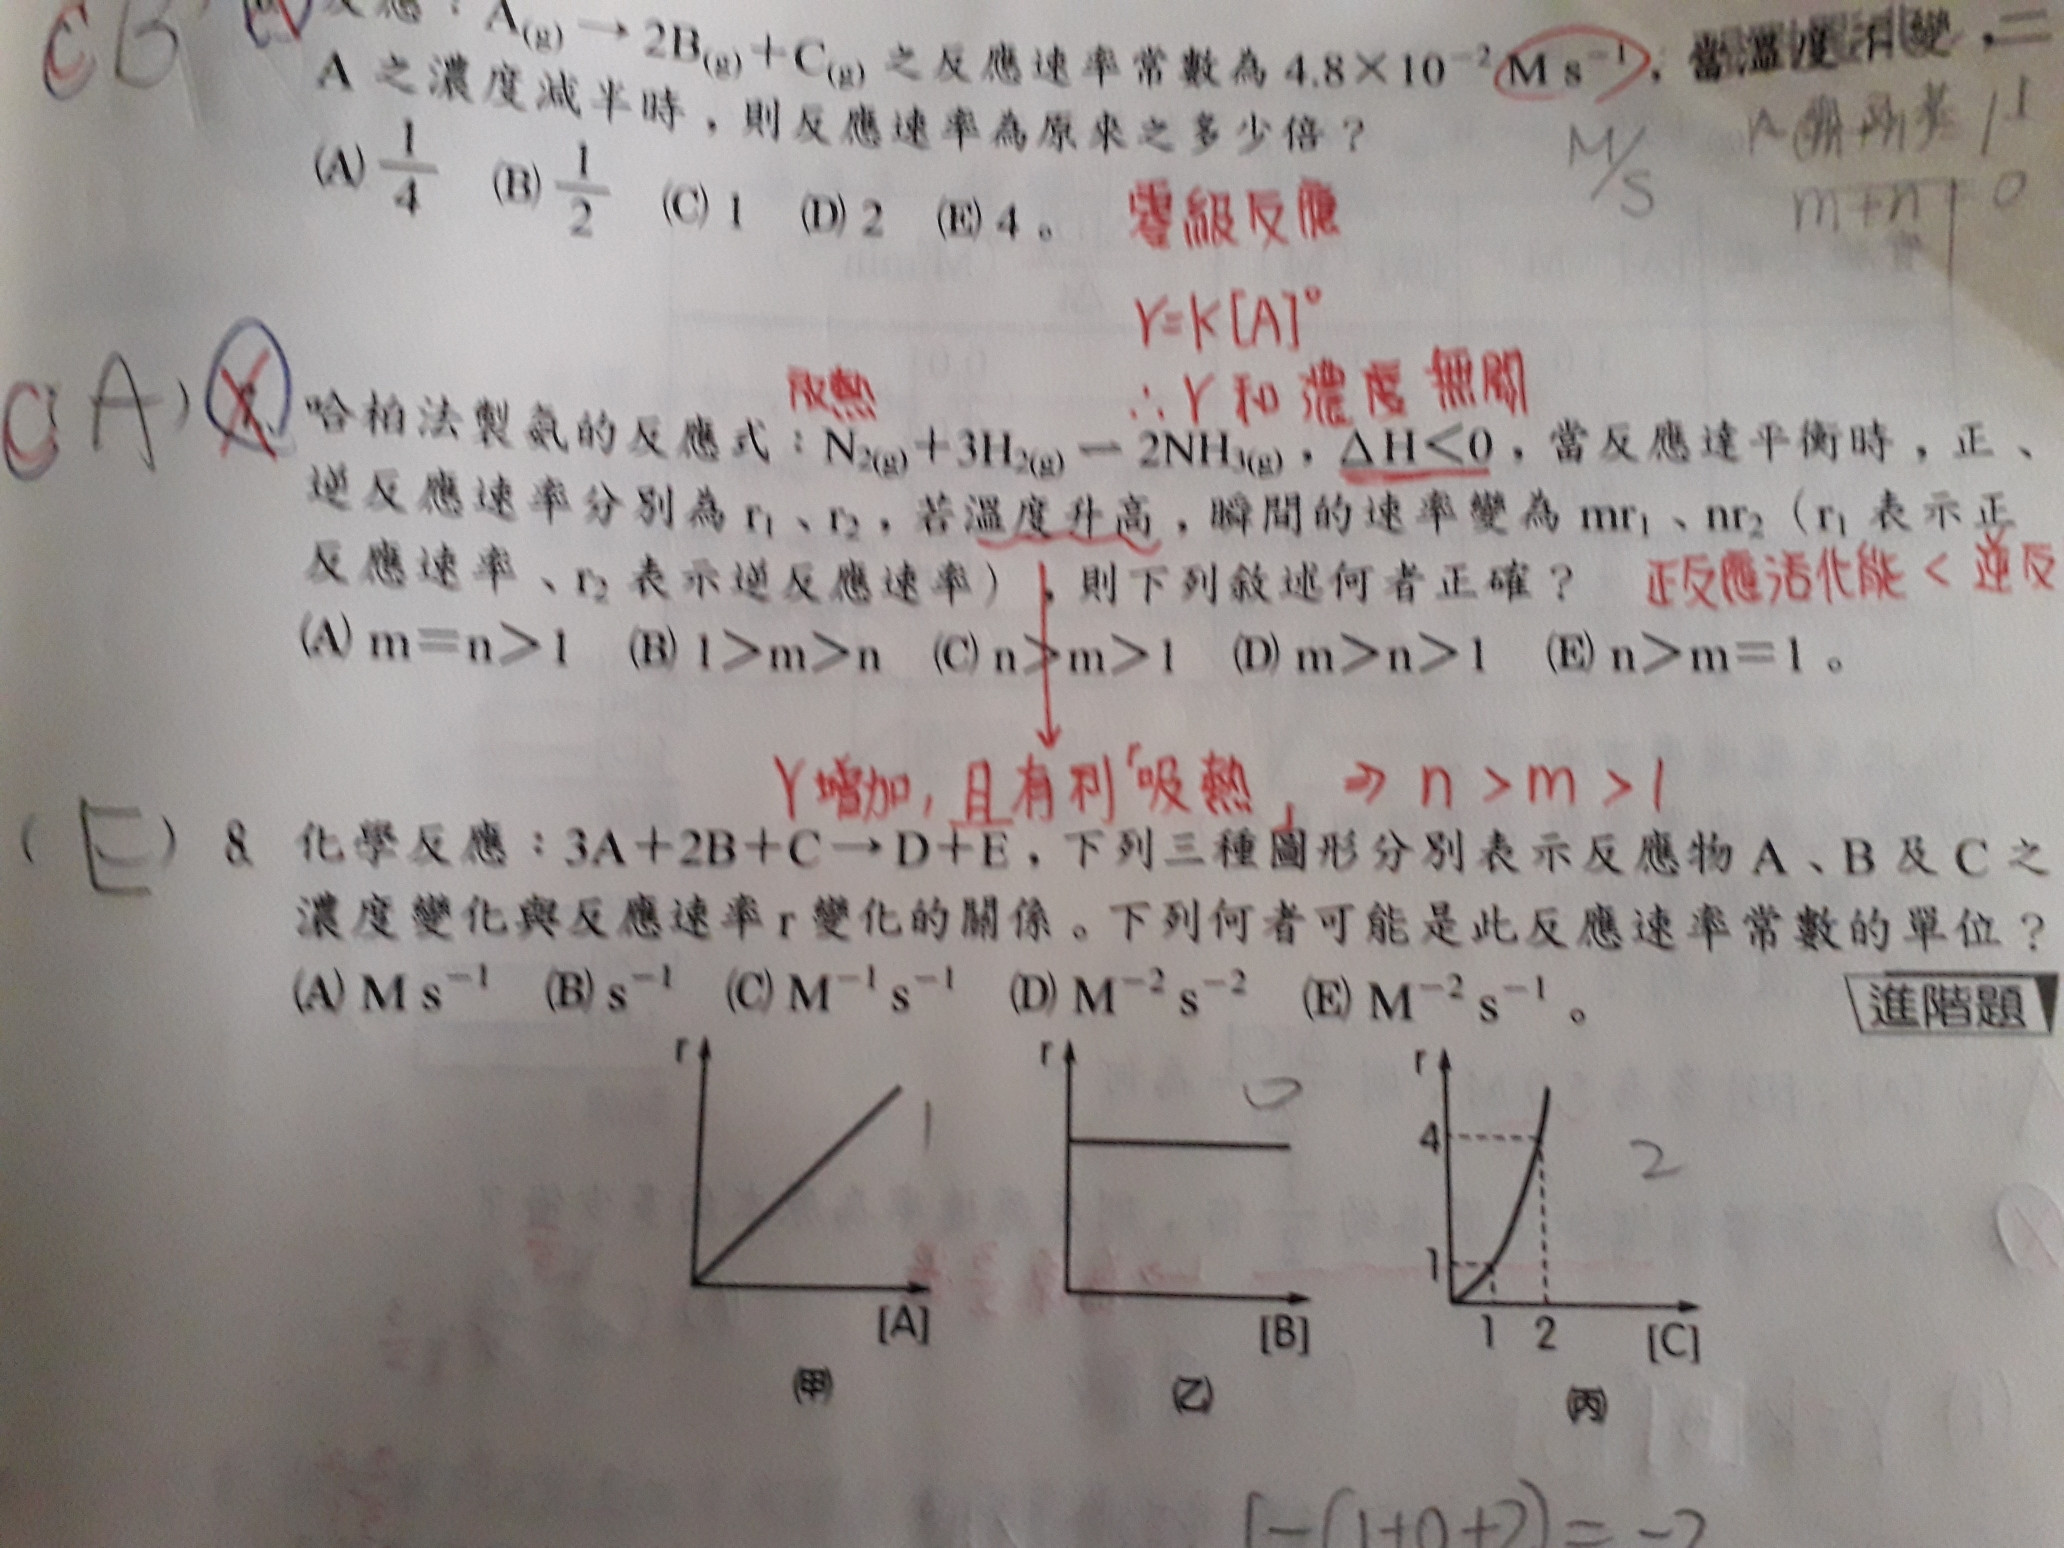 C B
反應：A(g) → 2B(g)+C(g) 之反應速率常數為 4.8×10⁻² M s⁻¹，當溫度不變，
A 之濃度減半時，則反應速率為原來之多少倍？
M/S
m+n
0
(A) 1/4 (B) 1/2 (C) 1 (D) 2 (E) 4。
零級反應
r=k[A]⁰
∴ r 和濃度無關
放熱
C A )
哈柏法製氨的反應式：N₂(g)+3H₂(g) ⇌ 2NH₃(g)，ΔH<0，當反應達平衡時，正、
逆反應速率分別為 r₁、r₂，若溫度升高，瞬間的速率變為 mr₁、nr₂（r₁ 表示正
反應速率、r₂ 表示逆反應速率），則下列敘述何者正確？
正反應活化能 < 逆反
(A) m=n>1 (B) 1>m>n (C) n>m>1 (D) m>n>1 (E) n>m=1。
r增加，且有利「吸熱」 ⇒ n > m > 1
( E ) 8. 化學反應：3A+2B+C→D+E，下列三種圖形分別表示反應物 A、B 及 C 之
濃度變化與反應速率 r 變化的關係。下列何者可能是此反應速率常數的單位？
(A) M s⁻¹ (B) s⁻¹ (C) M⁻¹ s⁻¹ (D) M⁻² s⁻² (E) M⁻² s⁻¹。
進階題
r
[A]
1
(甲)
r
[B]
0
(乙)
r
4
1
1 2 [C]
2
(丙)
1-(1+0+2)=-2